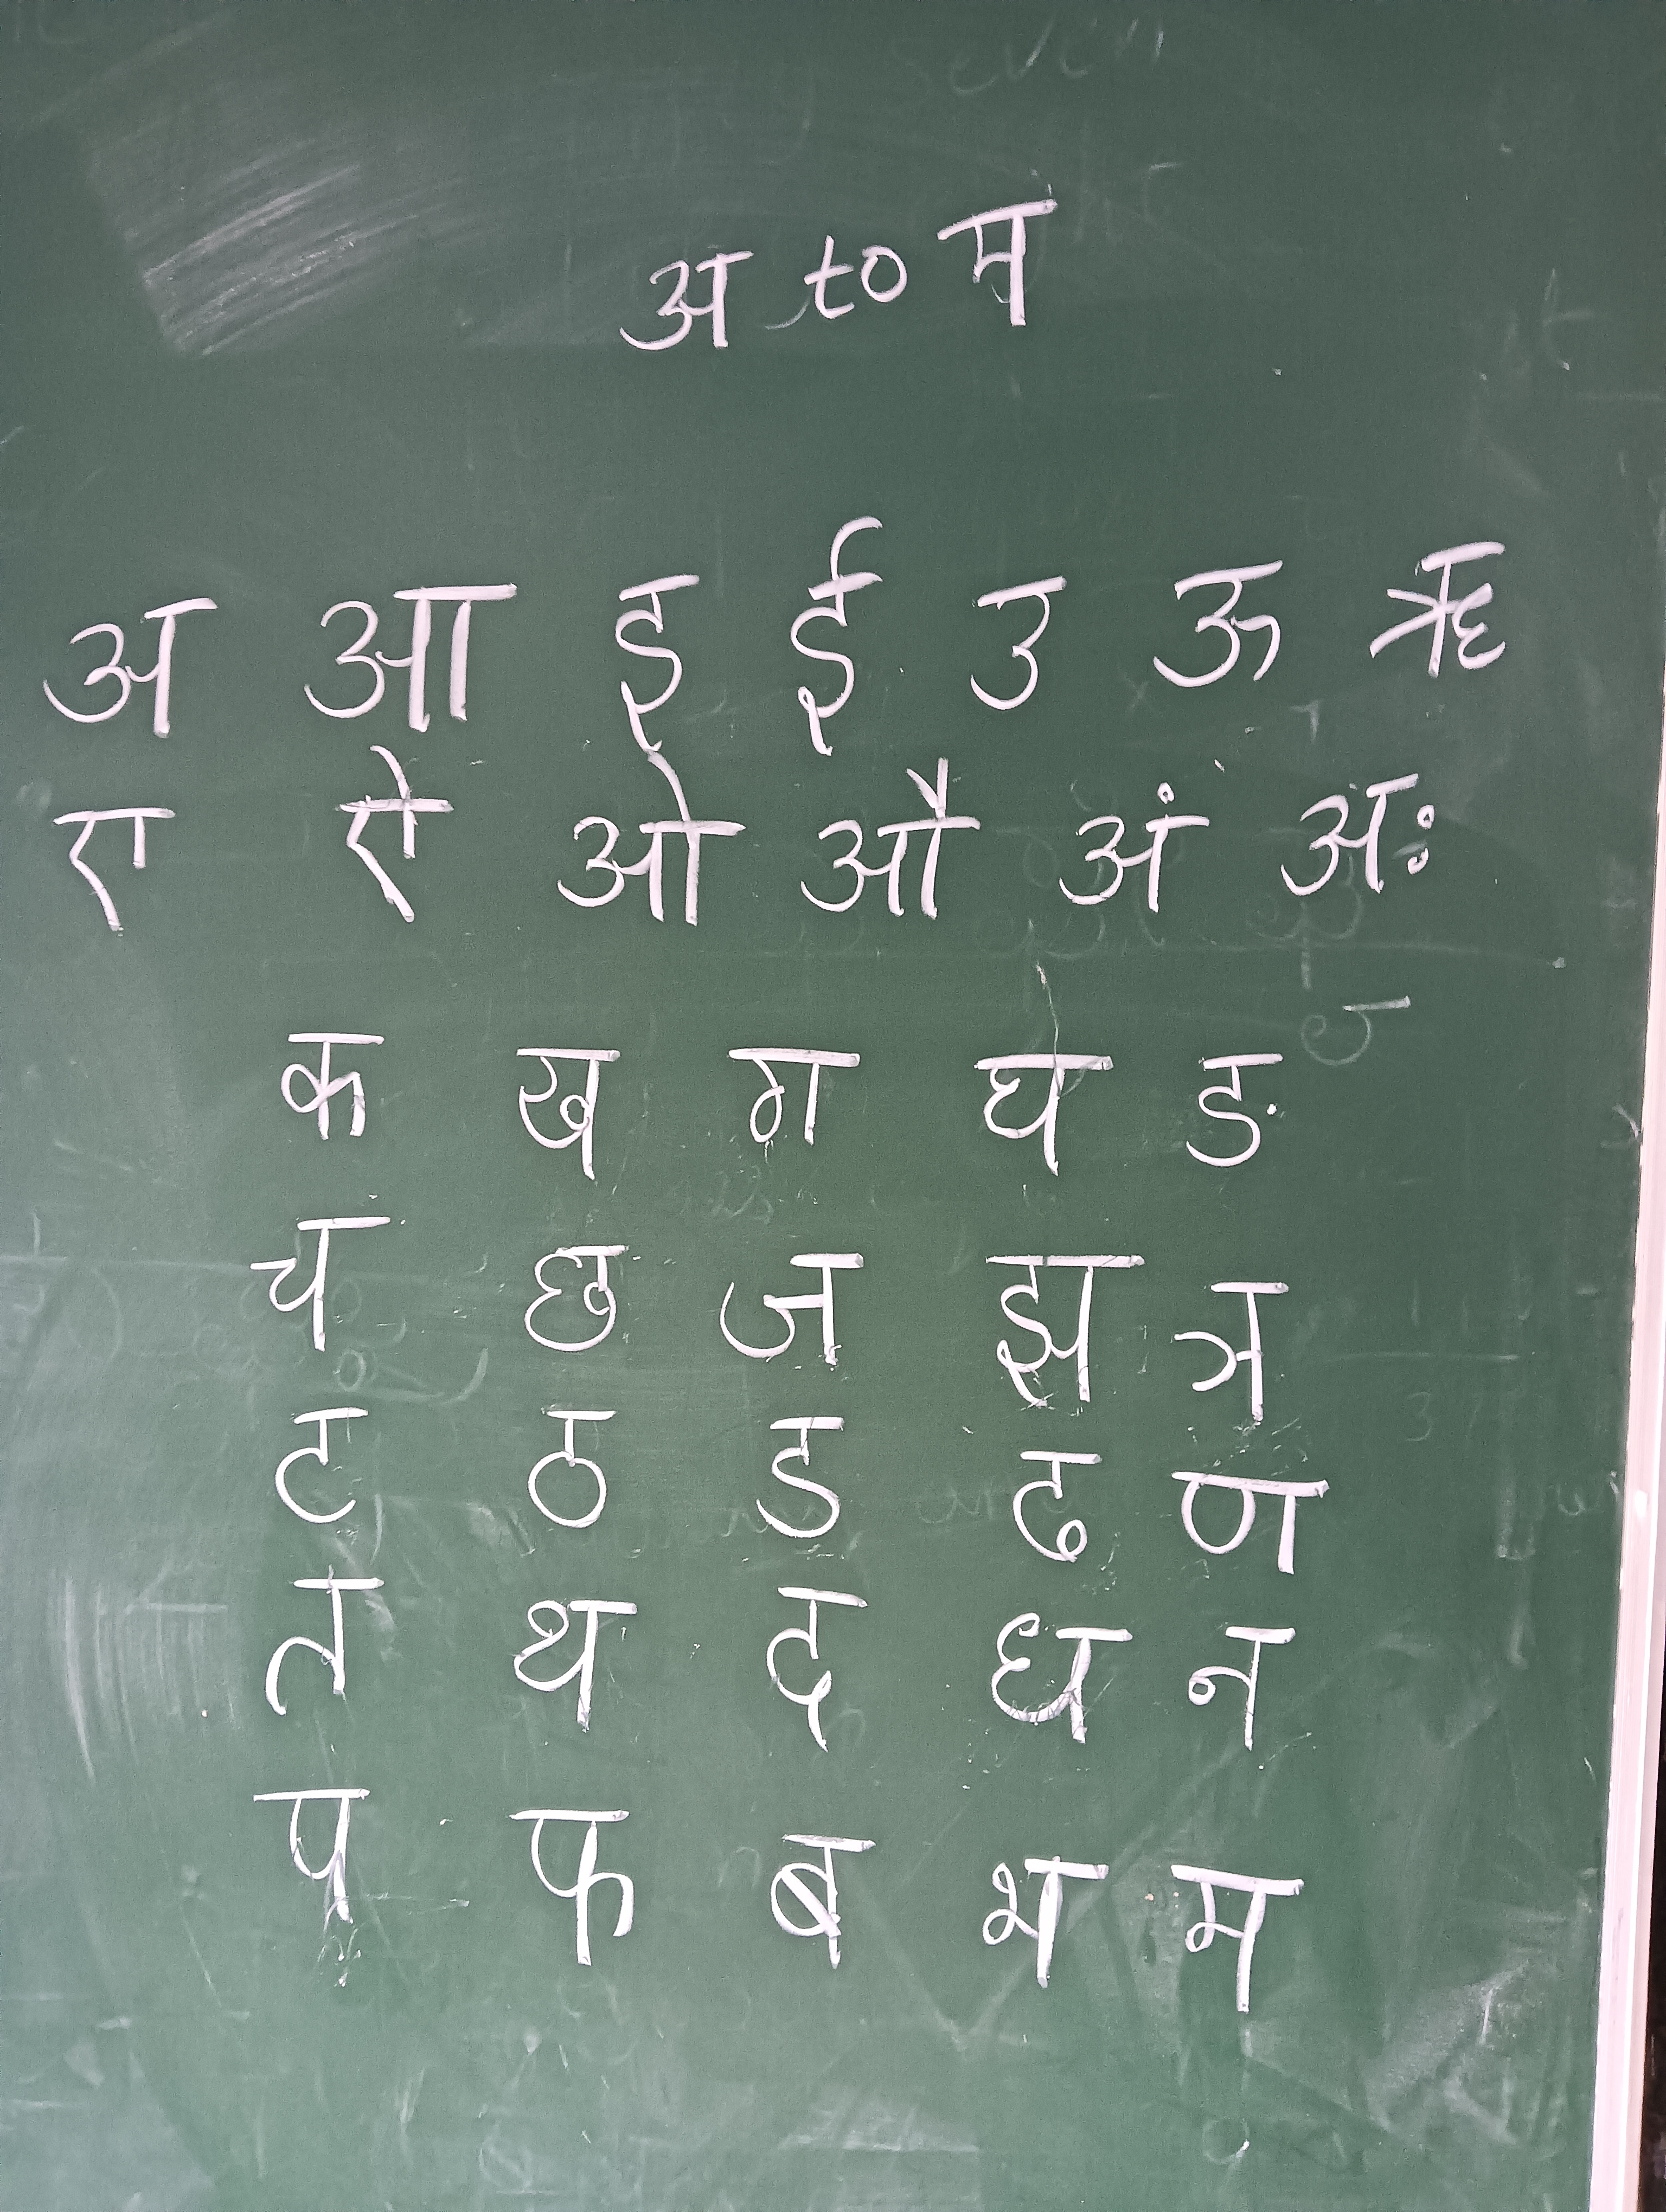 अ to म
अ आ इ ई उ ऊ ऋ
ए ऐ ओ औ अं अः
क ख ग घ ङ
च छ ज झ ञ
ट ठ ड ढ ण
त थ द ध न
प फ ब भ म